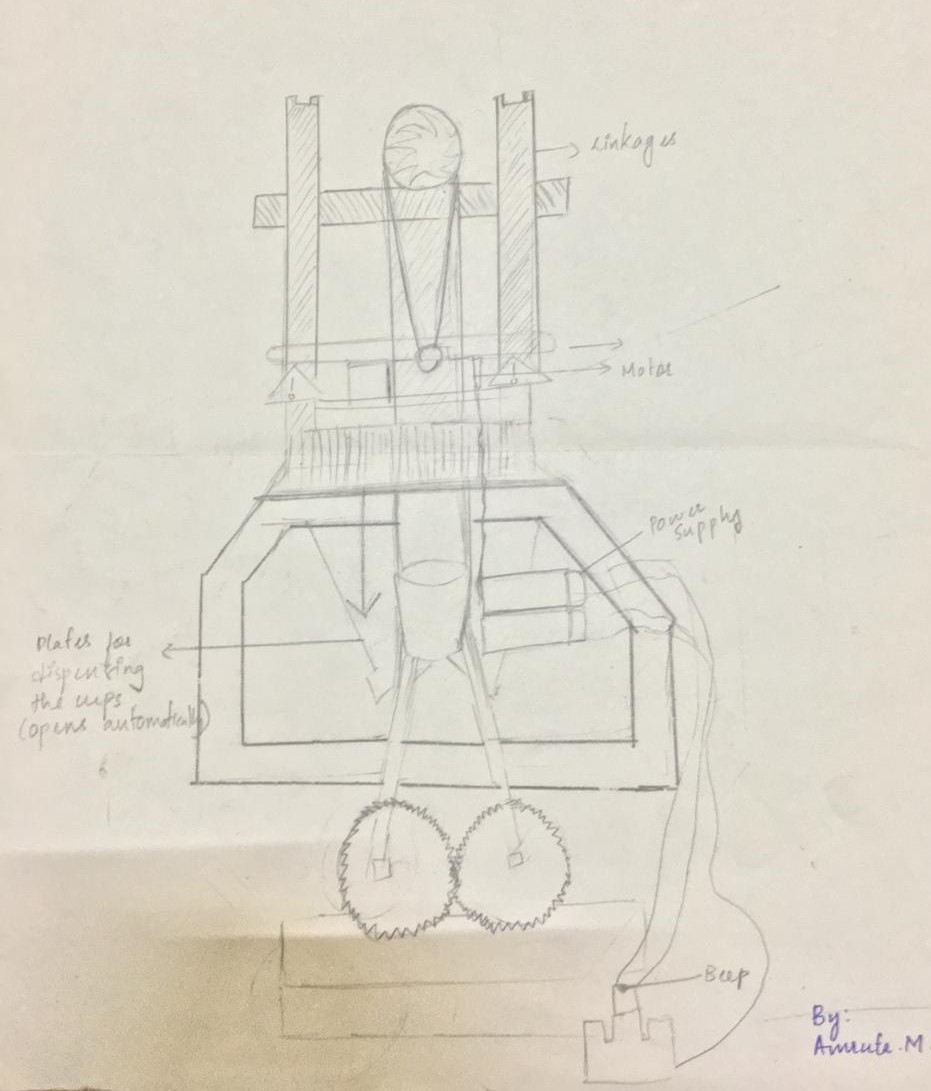 Linkages
Motor
Power
supply
Plates for
dispensing
the cups
(opens automatically)
Beep
By:
Amruta.M.